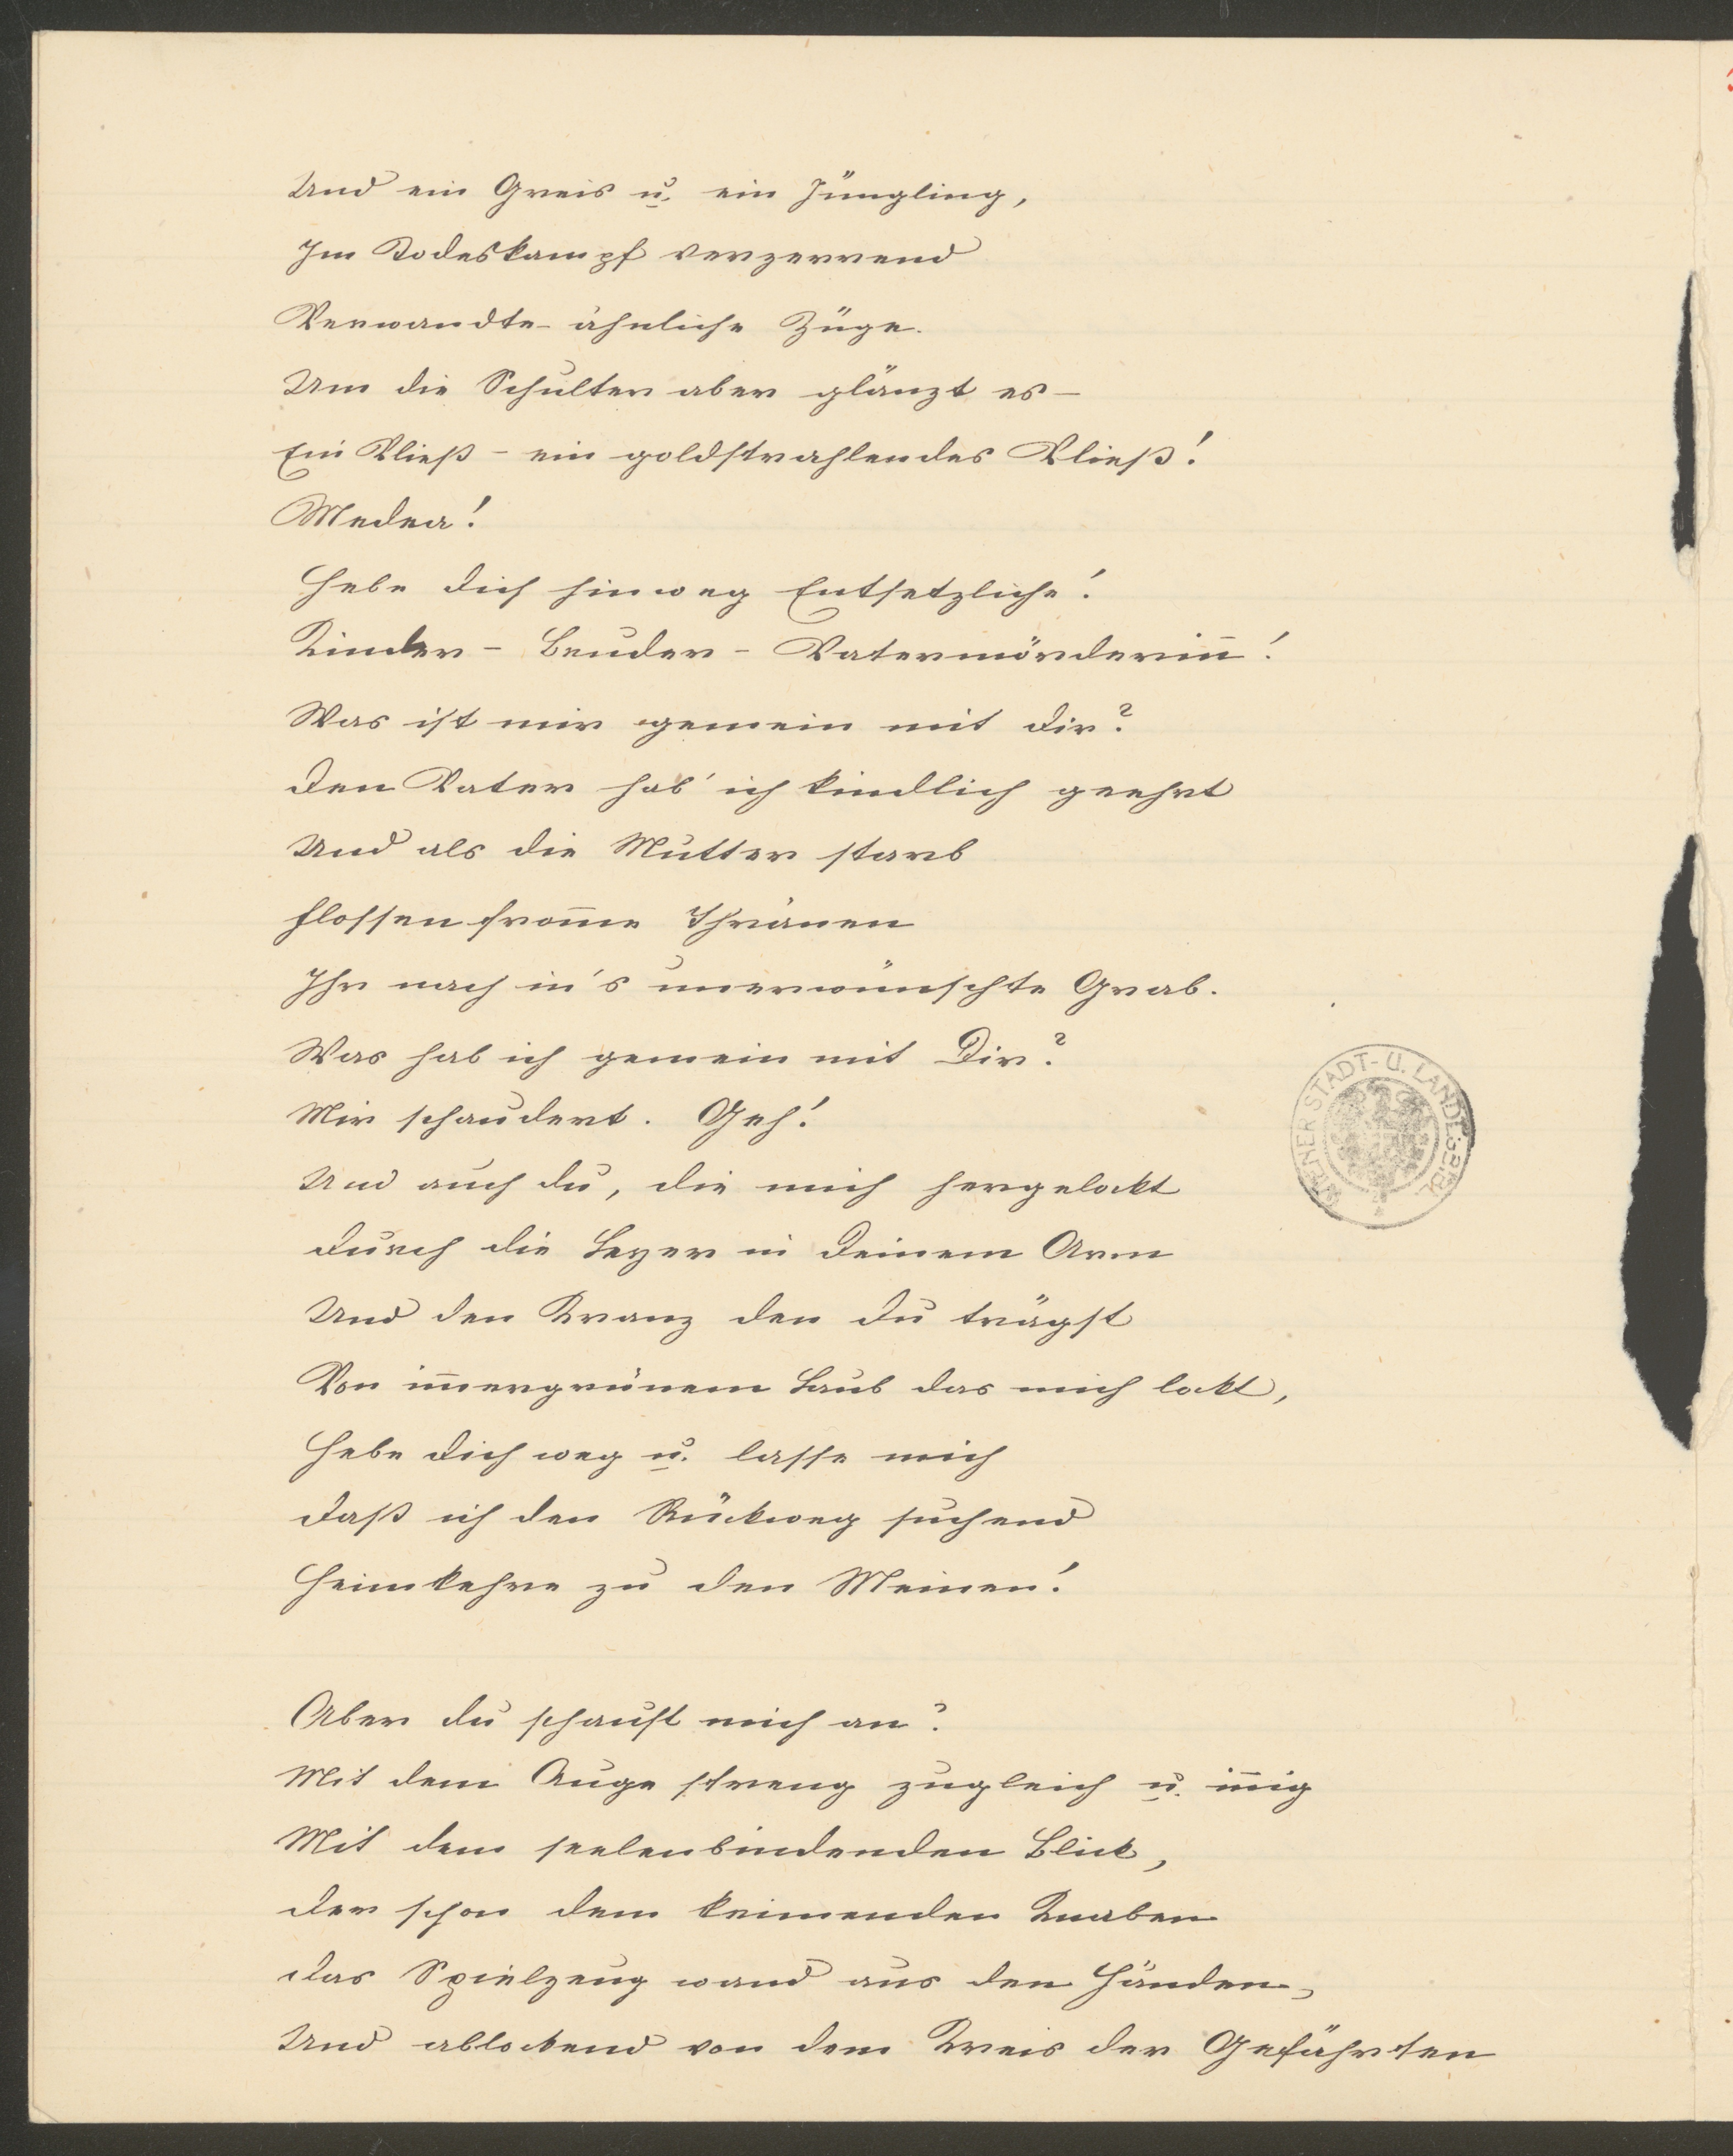 Und ein Greis u. ein Jüngling,
Im Todeskampf verzerrend
Verwandte- ähnliche Züge.
Um die Schulter aber glänzt es –
Ein Vließ – ein goldstrahlendes Vließ!
Medea!
Hebe dich hinweg Entsetzliche!
Kinder – Bruder – Vatermörderin̅!
Was ist mir gemein mit dir?
Den Vater hab' ich kindlich geehrt
Und als die Mutter starb
Flossen from̅e Thränen
Ihr nach in's unerwünschte Grab.
Was hab ich gemein mit Dir?
Mir schaudert. Geh!
Und auch du, die mich hergelockt
Durch die Leyer in Deinem Arm
Und den Kranz den du trägst
Von im̅ergrünem Laub das mich lockt,
Hebe dich weg u. lasse mich
Daß ich den Rückweg suchend
Heimkehre zu den Meinen!
Aber du schaust mich an?
Mit dem Auge streng zugleich u. in̅ig
Mit dem seelenbindenden Blick,
Der schon dem keimenden Knaben
Das Spielzeug wand aus den Händen,
Und ablockend von dem Kreis der Gefährten
WIENER STADT- U. LANDESBIBL.